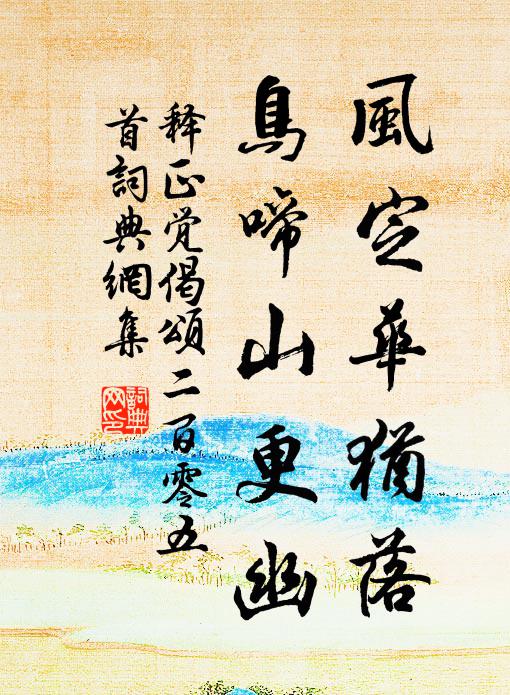 風定華猶落
鳥啼山更幽
释正觉偈頌二百零五
首詞典網集
詞典
网印